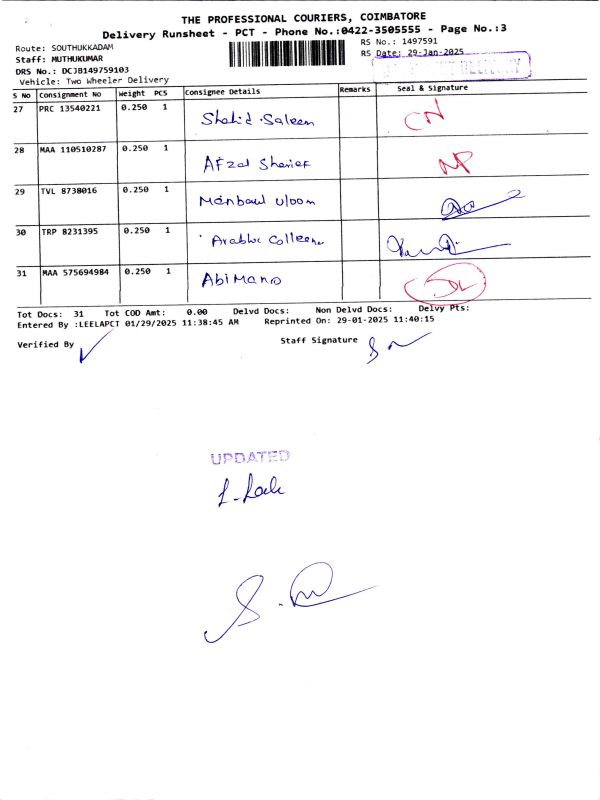 THE PROFESSIONAL COURIERS, COIMBATORE
Delivery Runsheet - PCT - Phone No.:0422-3505555 - Page No.:3
Route: SOUTHUKKADAM
RS No.: 1497591
Staff: MUTHUKUMAR
RS Date: 29-Jan-2025
DRS No.: DCJB149759103
Vehicle: Two Wheeler Delivery
DELIVERY
S No Consignment No Weight PCS Consignee Details Remarks Seal & Signature
27 PRC 13540221 0.250 1 Shahid .Saleem CN
28 MAA 110510287 0.250 1 Afzal Sherief NP
29 TVL 8738016 0.250 1 Manbaul Uloom
30 TRP 8231395 0.250 1 Arabbic Colleene
31 MAA 575694984 0.250 1 Abi Mano DL
Tot Docs: 31 Tot COD Amt: 0.00 Delvd Docs: Non Delvd Docs: Delvy Pts:
Entered By :LEELAPCT 01/29/2025 11:38:45 AM Reprinted On: 29-01-2025 11:40:15
Verified By Staff Signature
UPDATED